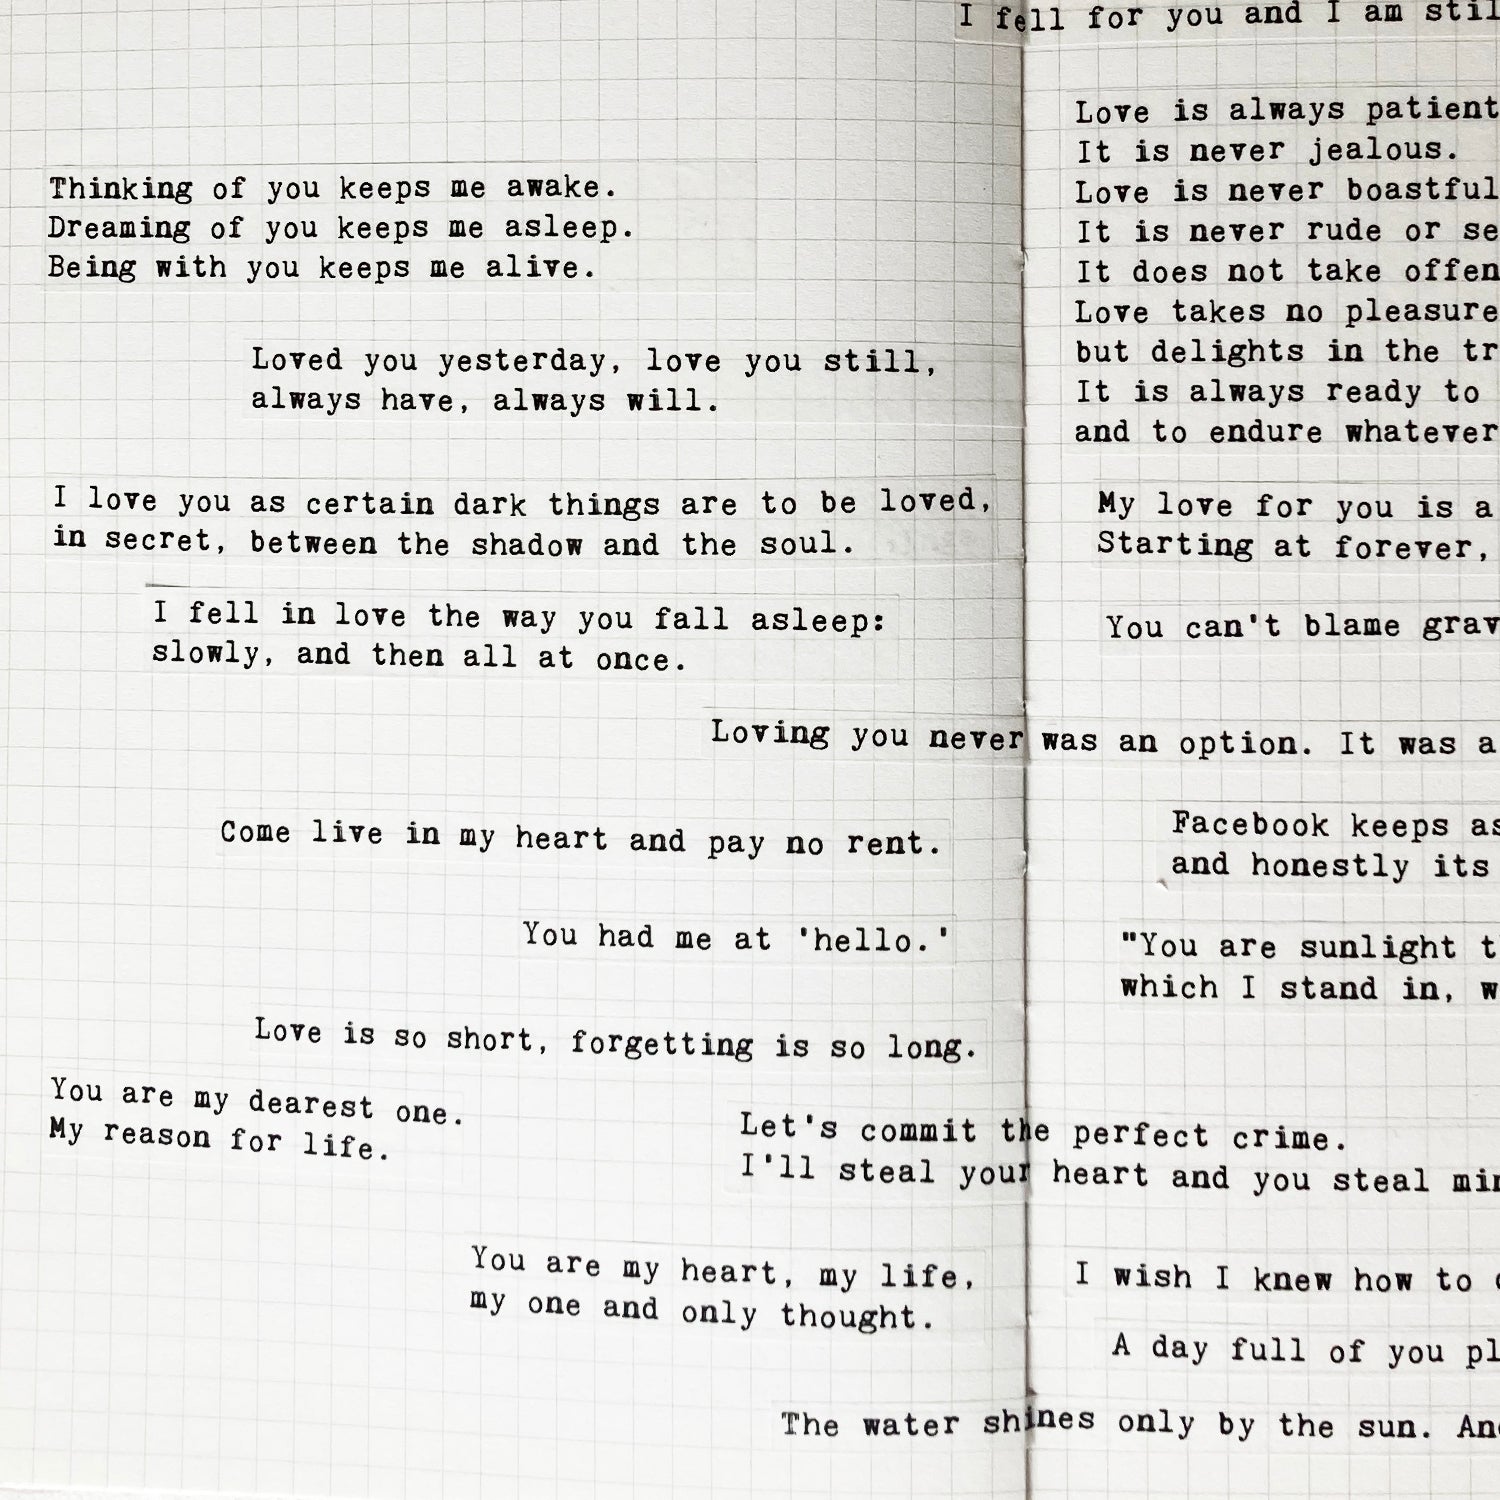 I fell for you and I am
Thinking of you keeps me awake.
Dreaming of you keeps me asleep.
Being with you keeps me alive.
Loved you yesterday, love you still,
always have, always will.
I love you as certain dark things are to be loved,
in secret, between the shadow and the soul.
I fell in love the way you fall asleep:
slowly, and then all at once.
Loving you never was an option. It was a
Come live in my heart and pay no rent.
You had me at 'hello.'
Love is so short, forgetting is so long.
You are my dearest one.
My reason for life.
Let's commit the perfect crime.
I'll steal your heart and you steal
You are my heart, my life,
my one and only thought.
The water shines only by the sun.
Love is always patient
It is never jealous.
Love is never boastful
It is never rude or
It does not take
Love takes no pleasure
but delights in the
It is always ready to
and to endure whatever
My love for you is a
Starting at forever,
You can't blame
Facebook keeps
and honestly its
"You are sunlight
which I stand in,
I wish I knew how to
A day full of you